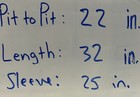 Pit to Pit: 22 in.
Length: 32 in.
Sleeve: 25 in.